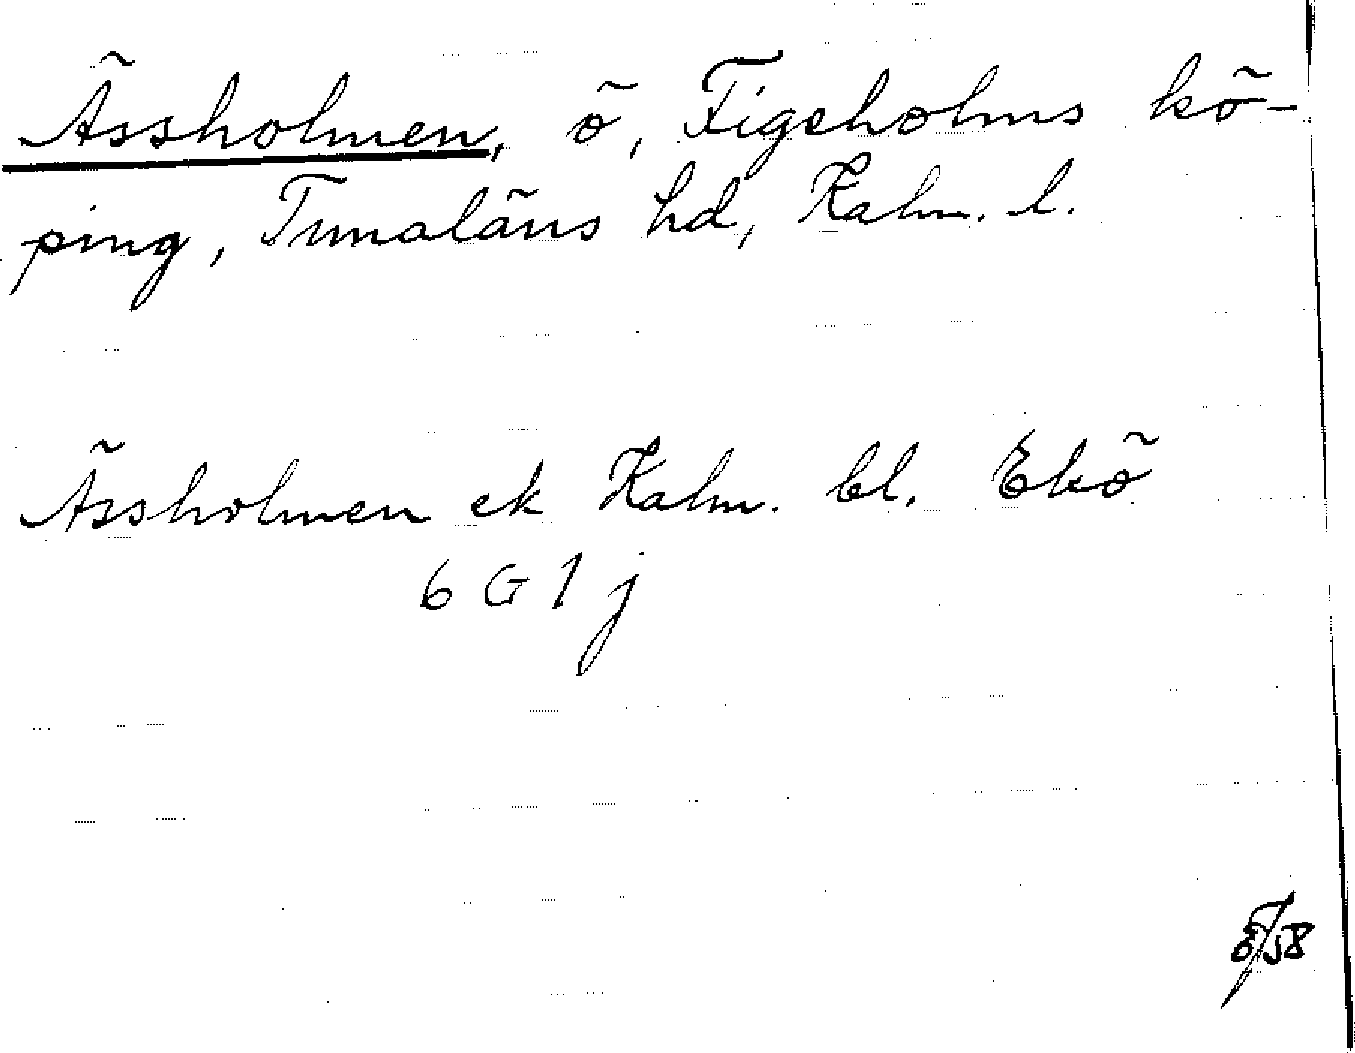 Ässholmen, ö, Figeholms kö-
ping, Tunaläns hd, Kalm. l.
Ässholmen ek Kalm. bl. Ekö
6 G 1 j